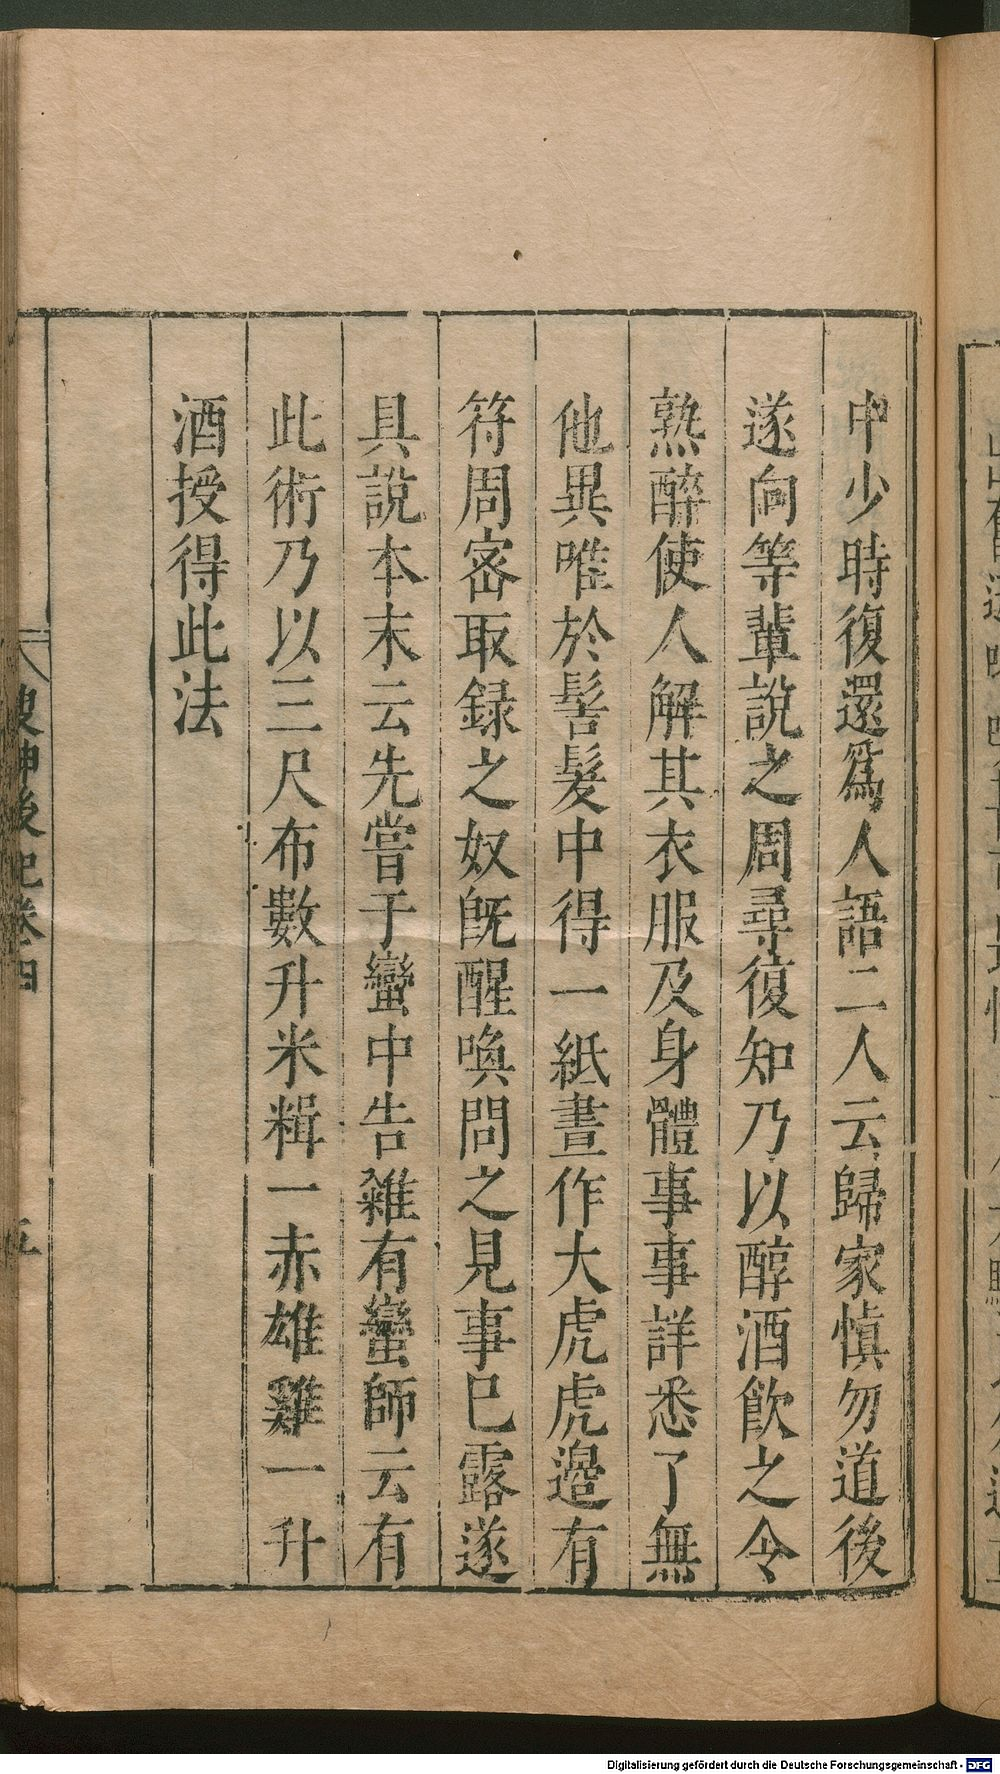 中少時復還爲人語二人云歸家愼勿道後
遂向等輩說之周尋復知乃以醇酒飮之令
熟醉使人解其衣服及身體事事詳悉了無
他異唯於髻髮中得一紙畫作大虎虎邉有
符周宻取録之奴旣醒喚問之見事已露遂
具說本末云先嘗于蠻中告糴有蠻師云有
此術乃以三尺布數升米糈一赤雄雞一升
酒授得此法
搜神後記卷四
五
Digitalisierung gefördert durch die Deutsche Forschungsgemeinschaft - DFG